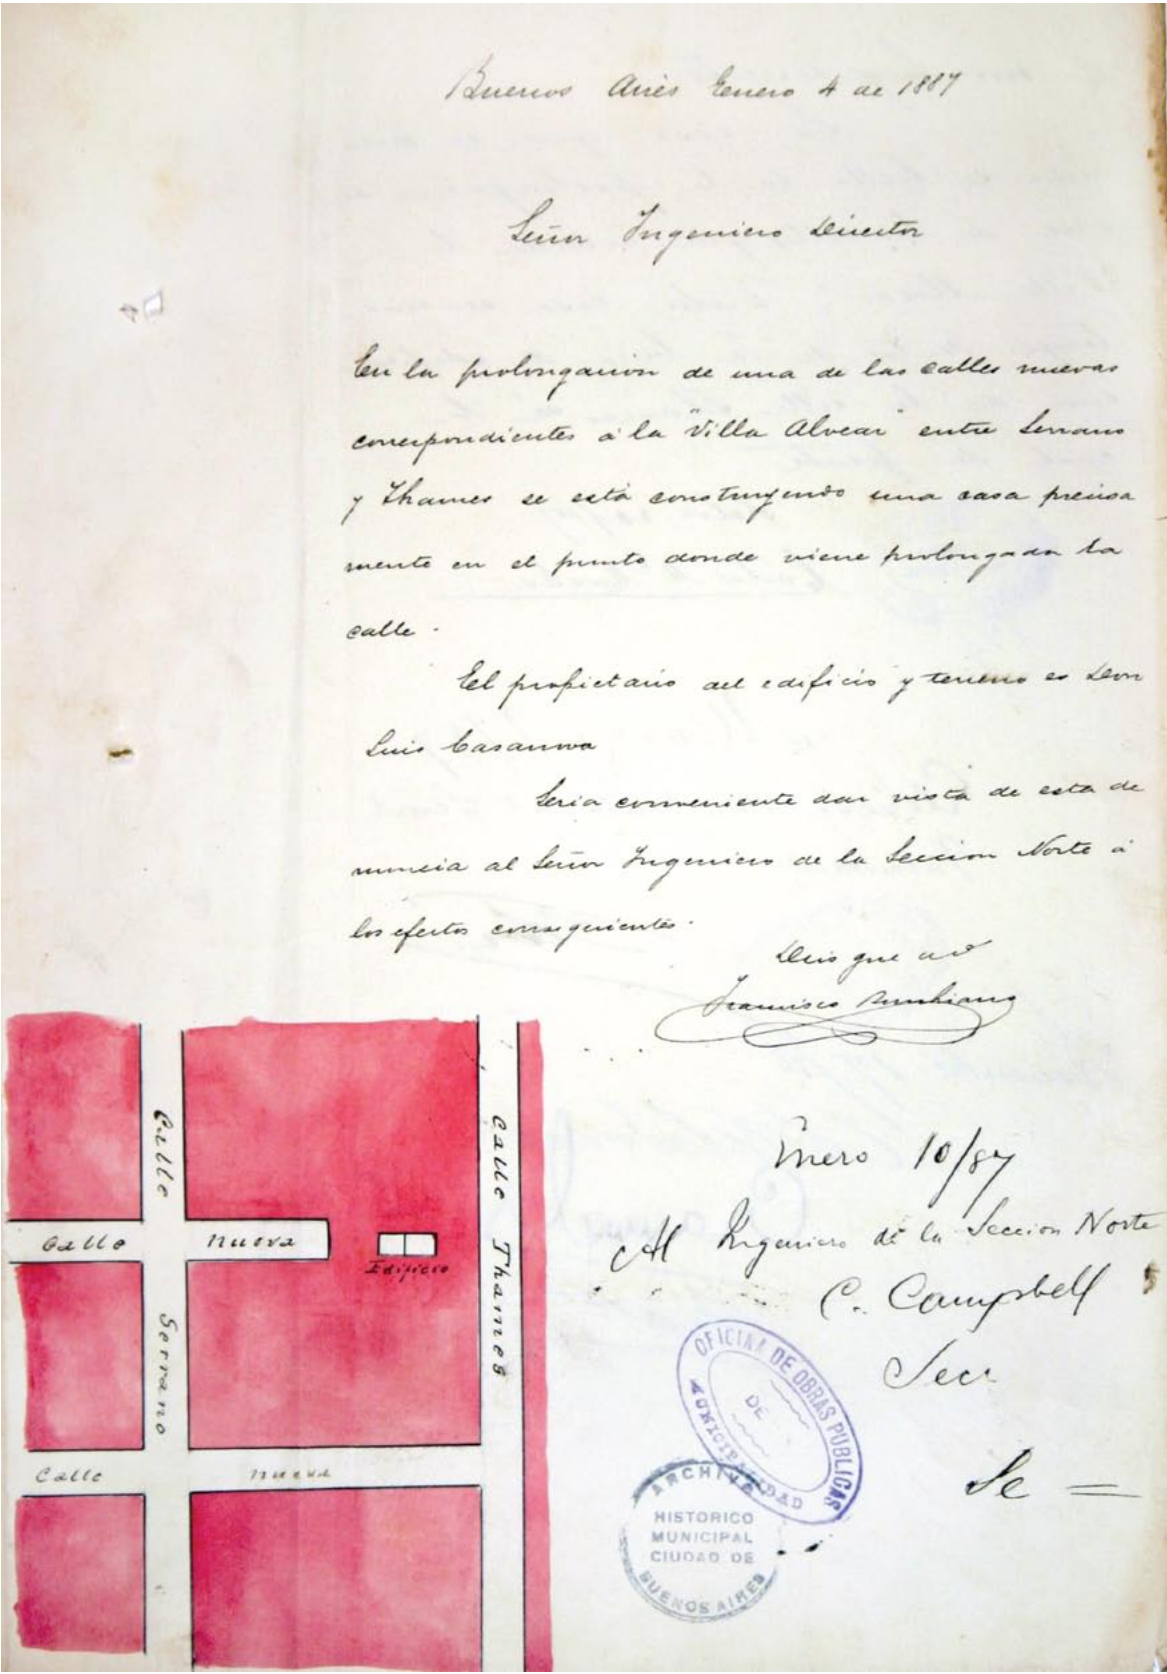 Buenos Aires Enero 4 de 1887
Señor Ingeniero Director
En la prolongacion de una de las calles nuevas
correspondientes á la "Villa Alvear" entre Serrano
y Thames se está construyendo una casa precisa
mente en el punto donde viene prolongada la
calle.
El propietario del edificio y terreno es Don
Luis Casanova
Seria conveniente dar vista de esta de
nuncia al Señor Ingeniero de la Seccion Norte á
los efectos consiguientes.
Dios gue a
Francisco
Enero 10/87
Al Ingeniero de la Seccion Norte
C. Campbell
Secr
Calle Serrano
Calle Thames
Calle nueva
Edificio
Calle nueva
OFICINA DE OBRAS PUBLICAS
DE
MUNICIPALIDAD
ARCHIVO
HISTORICO
MUNICIPAL
CIUDAD DE
BUENOS AIRES